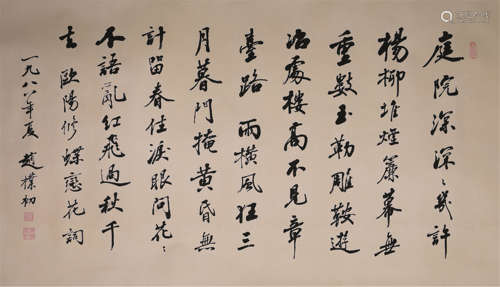 庭院深深〻幾許
楊柳堆煙簾幕無
重數玉勒雕鞍遊
冶處樓高不見章
臺路雨橫風狂三
月暮門掩黃昏無
計留春住淚眼問花〻
不語亂紅飛過秋千
去 歐陽修蝶戀花詞
一九八八年夏 趙樸初